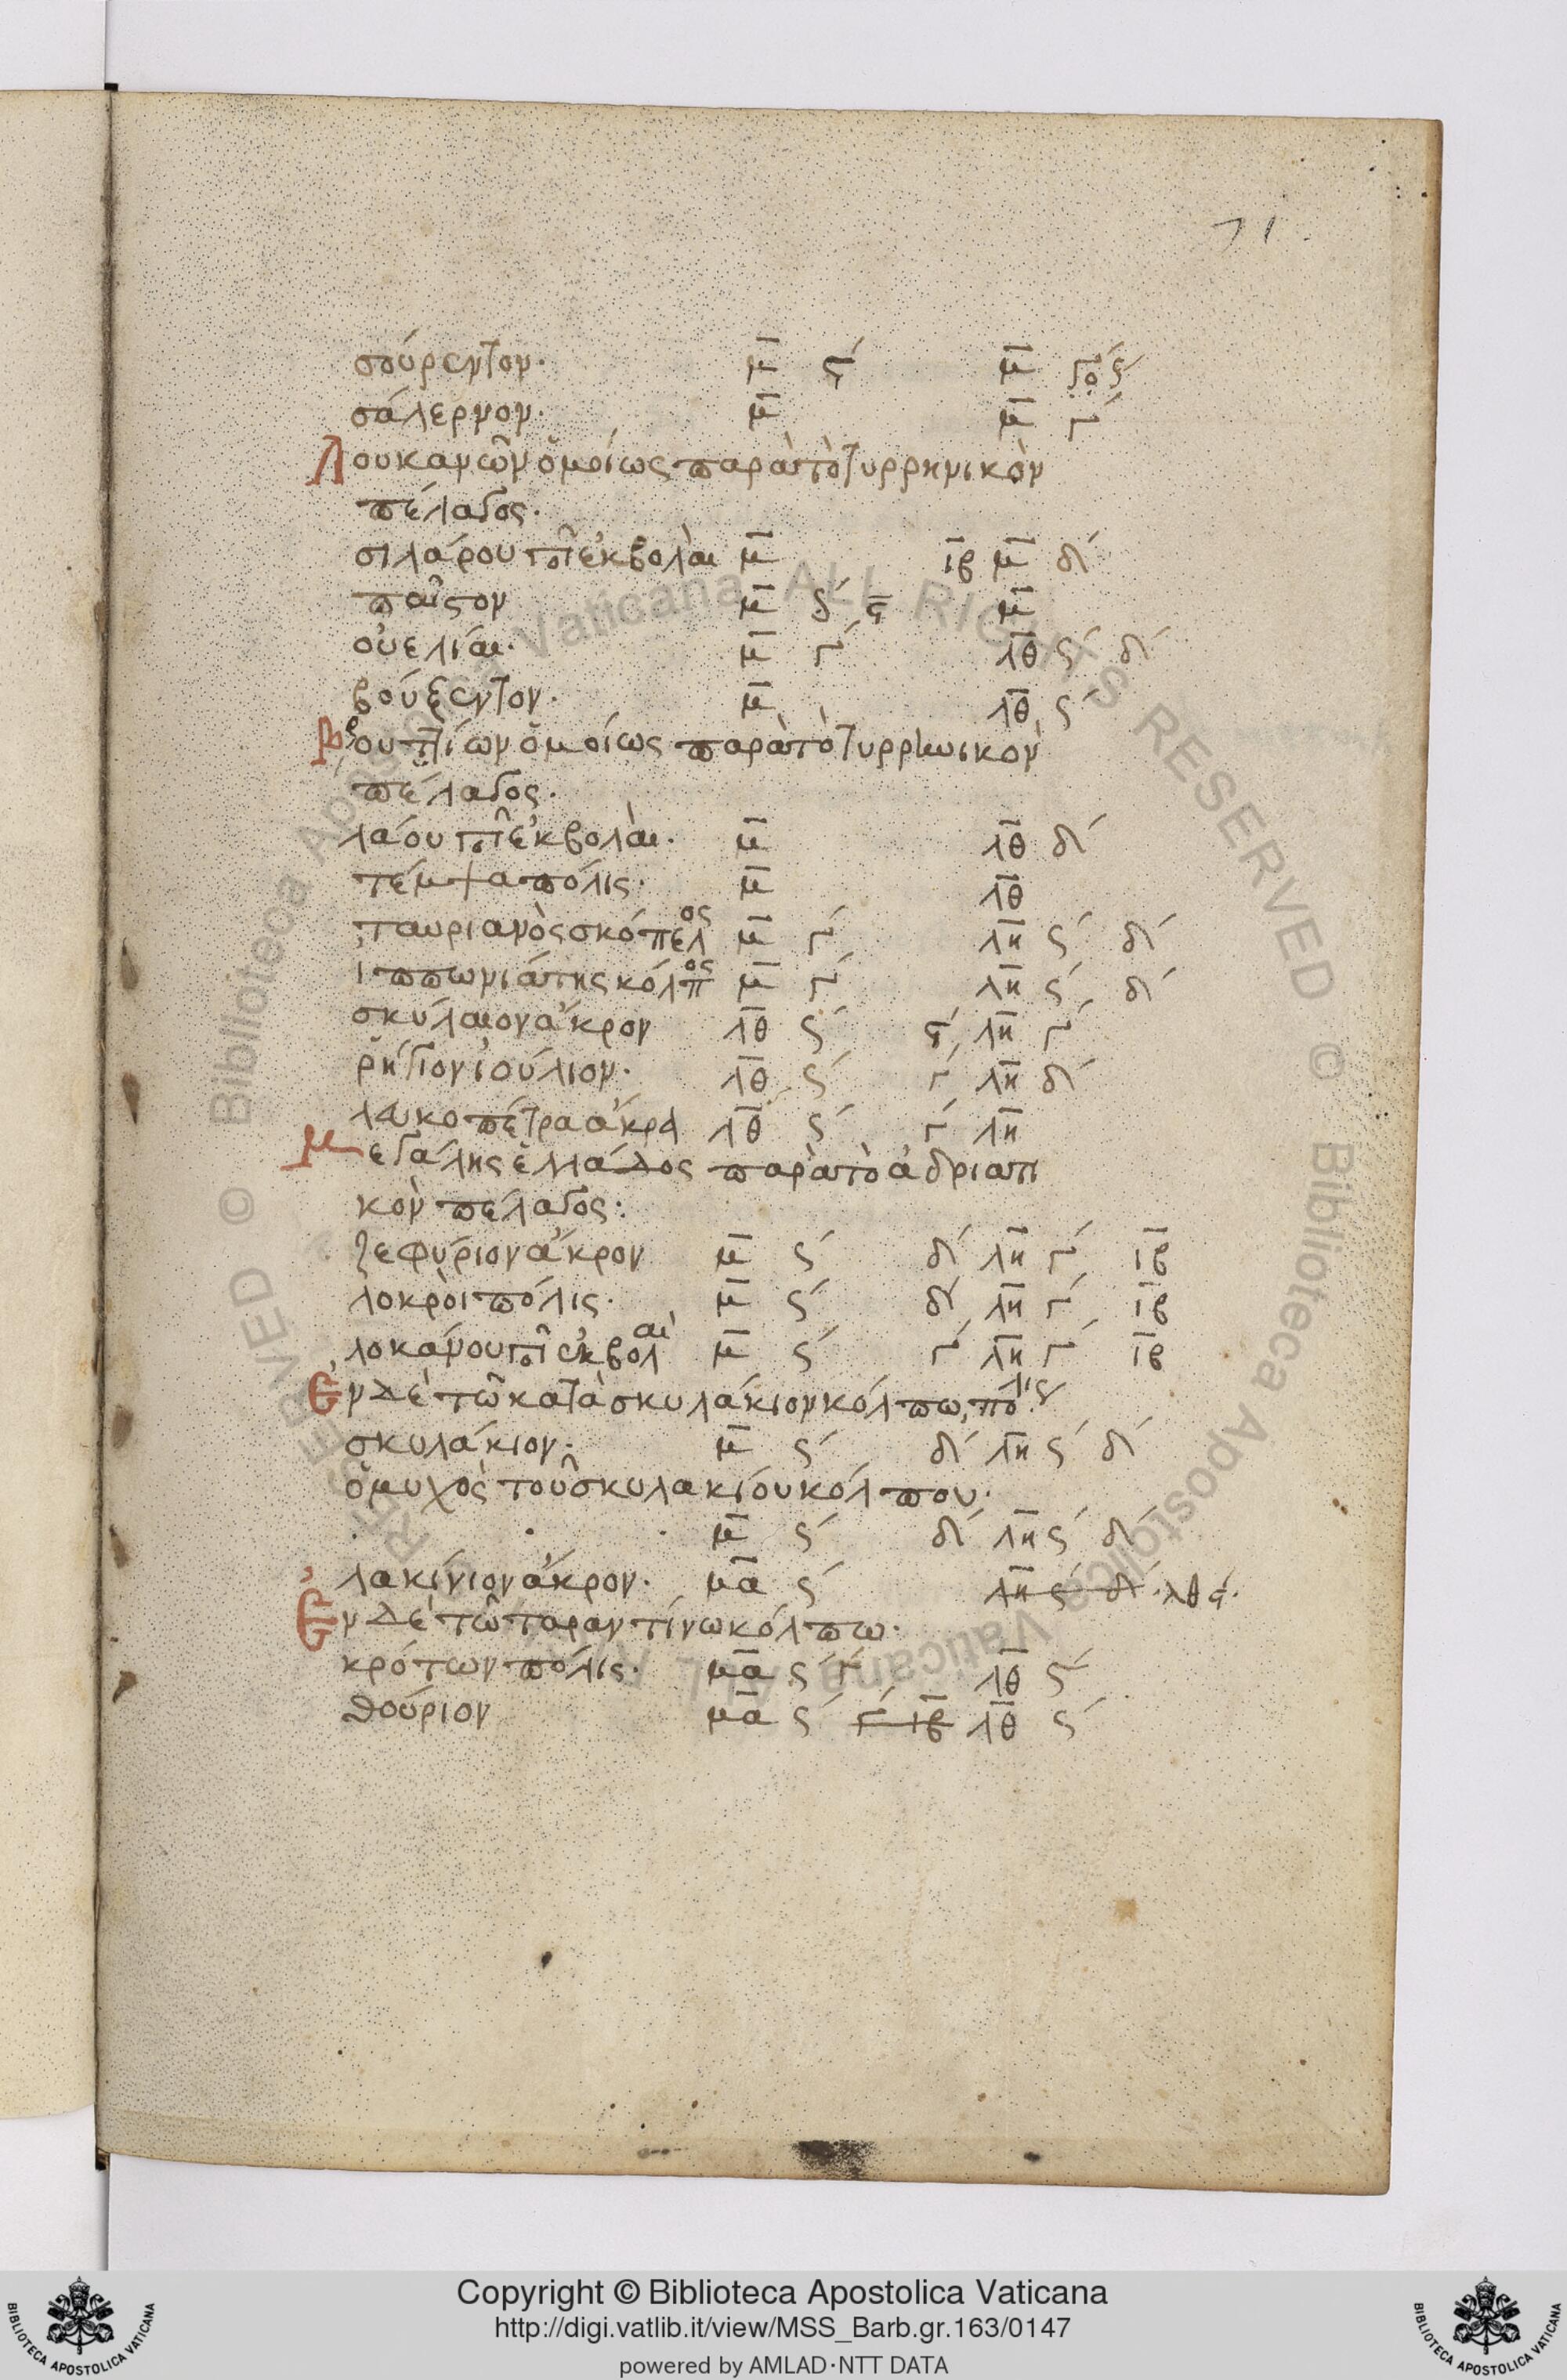 71
σούρεντον· μ̄ ϛ́ μ̄ γο ϛ́
σάλερνον· μ̄ μ̄ γ́
Λουκανῶν ὁμοίως παρὰ τὸ τυρρηνικὸν
πέλαγος·
σιλάρου π̅ο̅ ἐκβολὰι μ̄ ιβ μ̄ δ́
παῖστον μ̄ δ́ ϛ̄ μ̄
οὐελίαι· μ̄ γ́ λθ̄ ς́ δ́
βούξεντον· μ̄ λθ̄ ς́
Βρουττίων ὁμοίως παρὰ τὸ τυρρηνικὸν
πέλαγος·
λάου π̅ο̅ ἐκβολὰι· μ̄ λθ̄ δ́
τέμψα πόλις· μ̄ λθ̄
ταυριανὸς σκόπελος μ̄ γ́ λη̄ ς́ δ́
ιππωνιάτης κόλπος μ̄ γ́ λη̄ ς́ δ́
σκύλαιον ἄκρον λθ̄ ς́ ϛ́ λη̄ γ́
ῥήγιον ἰούλιον· λθ̄ ς́ γ́ λη̄ δ́
λευκοπέτρα ἄκρα λθ̄ ς́ γ́ λη̄
Μεγάλης ἑλλάδος παρὰ τὸ ἀδριατι
κὸν πέλαγος:
ζεφύριον ἄκρον μ̄ ς́ δ́ λη̄ γ́ ιβ̄
λοκρὸι πόλις· μ̄ ς́ δ́ λη̄ γ́ ιβ̄
λοκάνου π̅ο̅ ἐκβολαὶ μ̄ ς́ γ́ λη̄ γ́ ιβ̄
Ἐν δὲ τῶ κατὰ σκυλάκιον κόλπω, πόλις
σκυλάκιον· μ̄ ς́ δ́ λη̄ ς́ δ́
ὁ μυχὸς τοῦ σκυλακίου κόλπου·
μ̄ ς́ δ́ λη̄ ς́ δ́
λακίνιον ἄκρον· μᾱ ς́ λη̄ ς́ δ́ · λθ ϛ́·
Ἐν δὲ τῶ ταραντίνω κόλπω·
κρότων πόλις· μᾱ ς́ γ́ λθ̄ ς́
θούριον μᾱ ς́ γ́ ιβ̄ λθ̄ ς́
Copyright © Biblioteca Apostolica Vaticana
http://digi.vatlib.it/view/MSS_Barb.gr.163/0147
powered by AMLAD·NTT DATA